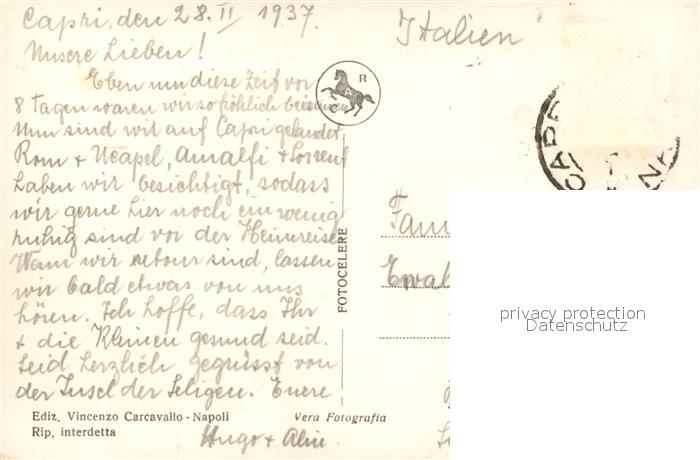 Capri, den 28. II 1937.
Italien
Unsere Lieben!
Eben um diese Zeit vor
8 Tagen waren wir so fröhlich beisammen
Nun sind wir auf Capri gelandet,
Rom + Neapel, Amalfi + Sorrent
haben wir besichtigt, sodass
wir gerne hier noch ein wenig
ruhig sind vor der Heimreise
Wann wir retour sind, lassen
wir bald etwas von uns
hören. Ich hoffe, dass Ihr
+ die Kleinen gesund seid.
Seid herzlich gegrüsst von
der Insel der Seligen. Eure
Hugo +
C A R
CAPR
Fam
Ewal
FOTOCELERE
privacy protection
Datenschutz
Ediz. Vincenzo Carcavallo - Napoli
Rip. interdetta
Vera Fotografia